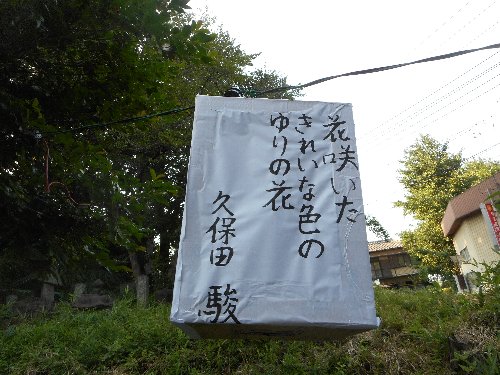 花咲いた
きれいな色の
ゆりの花
久保田 駿